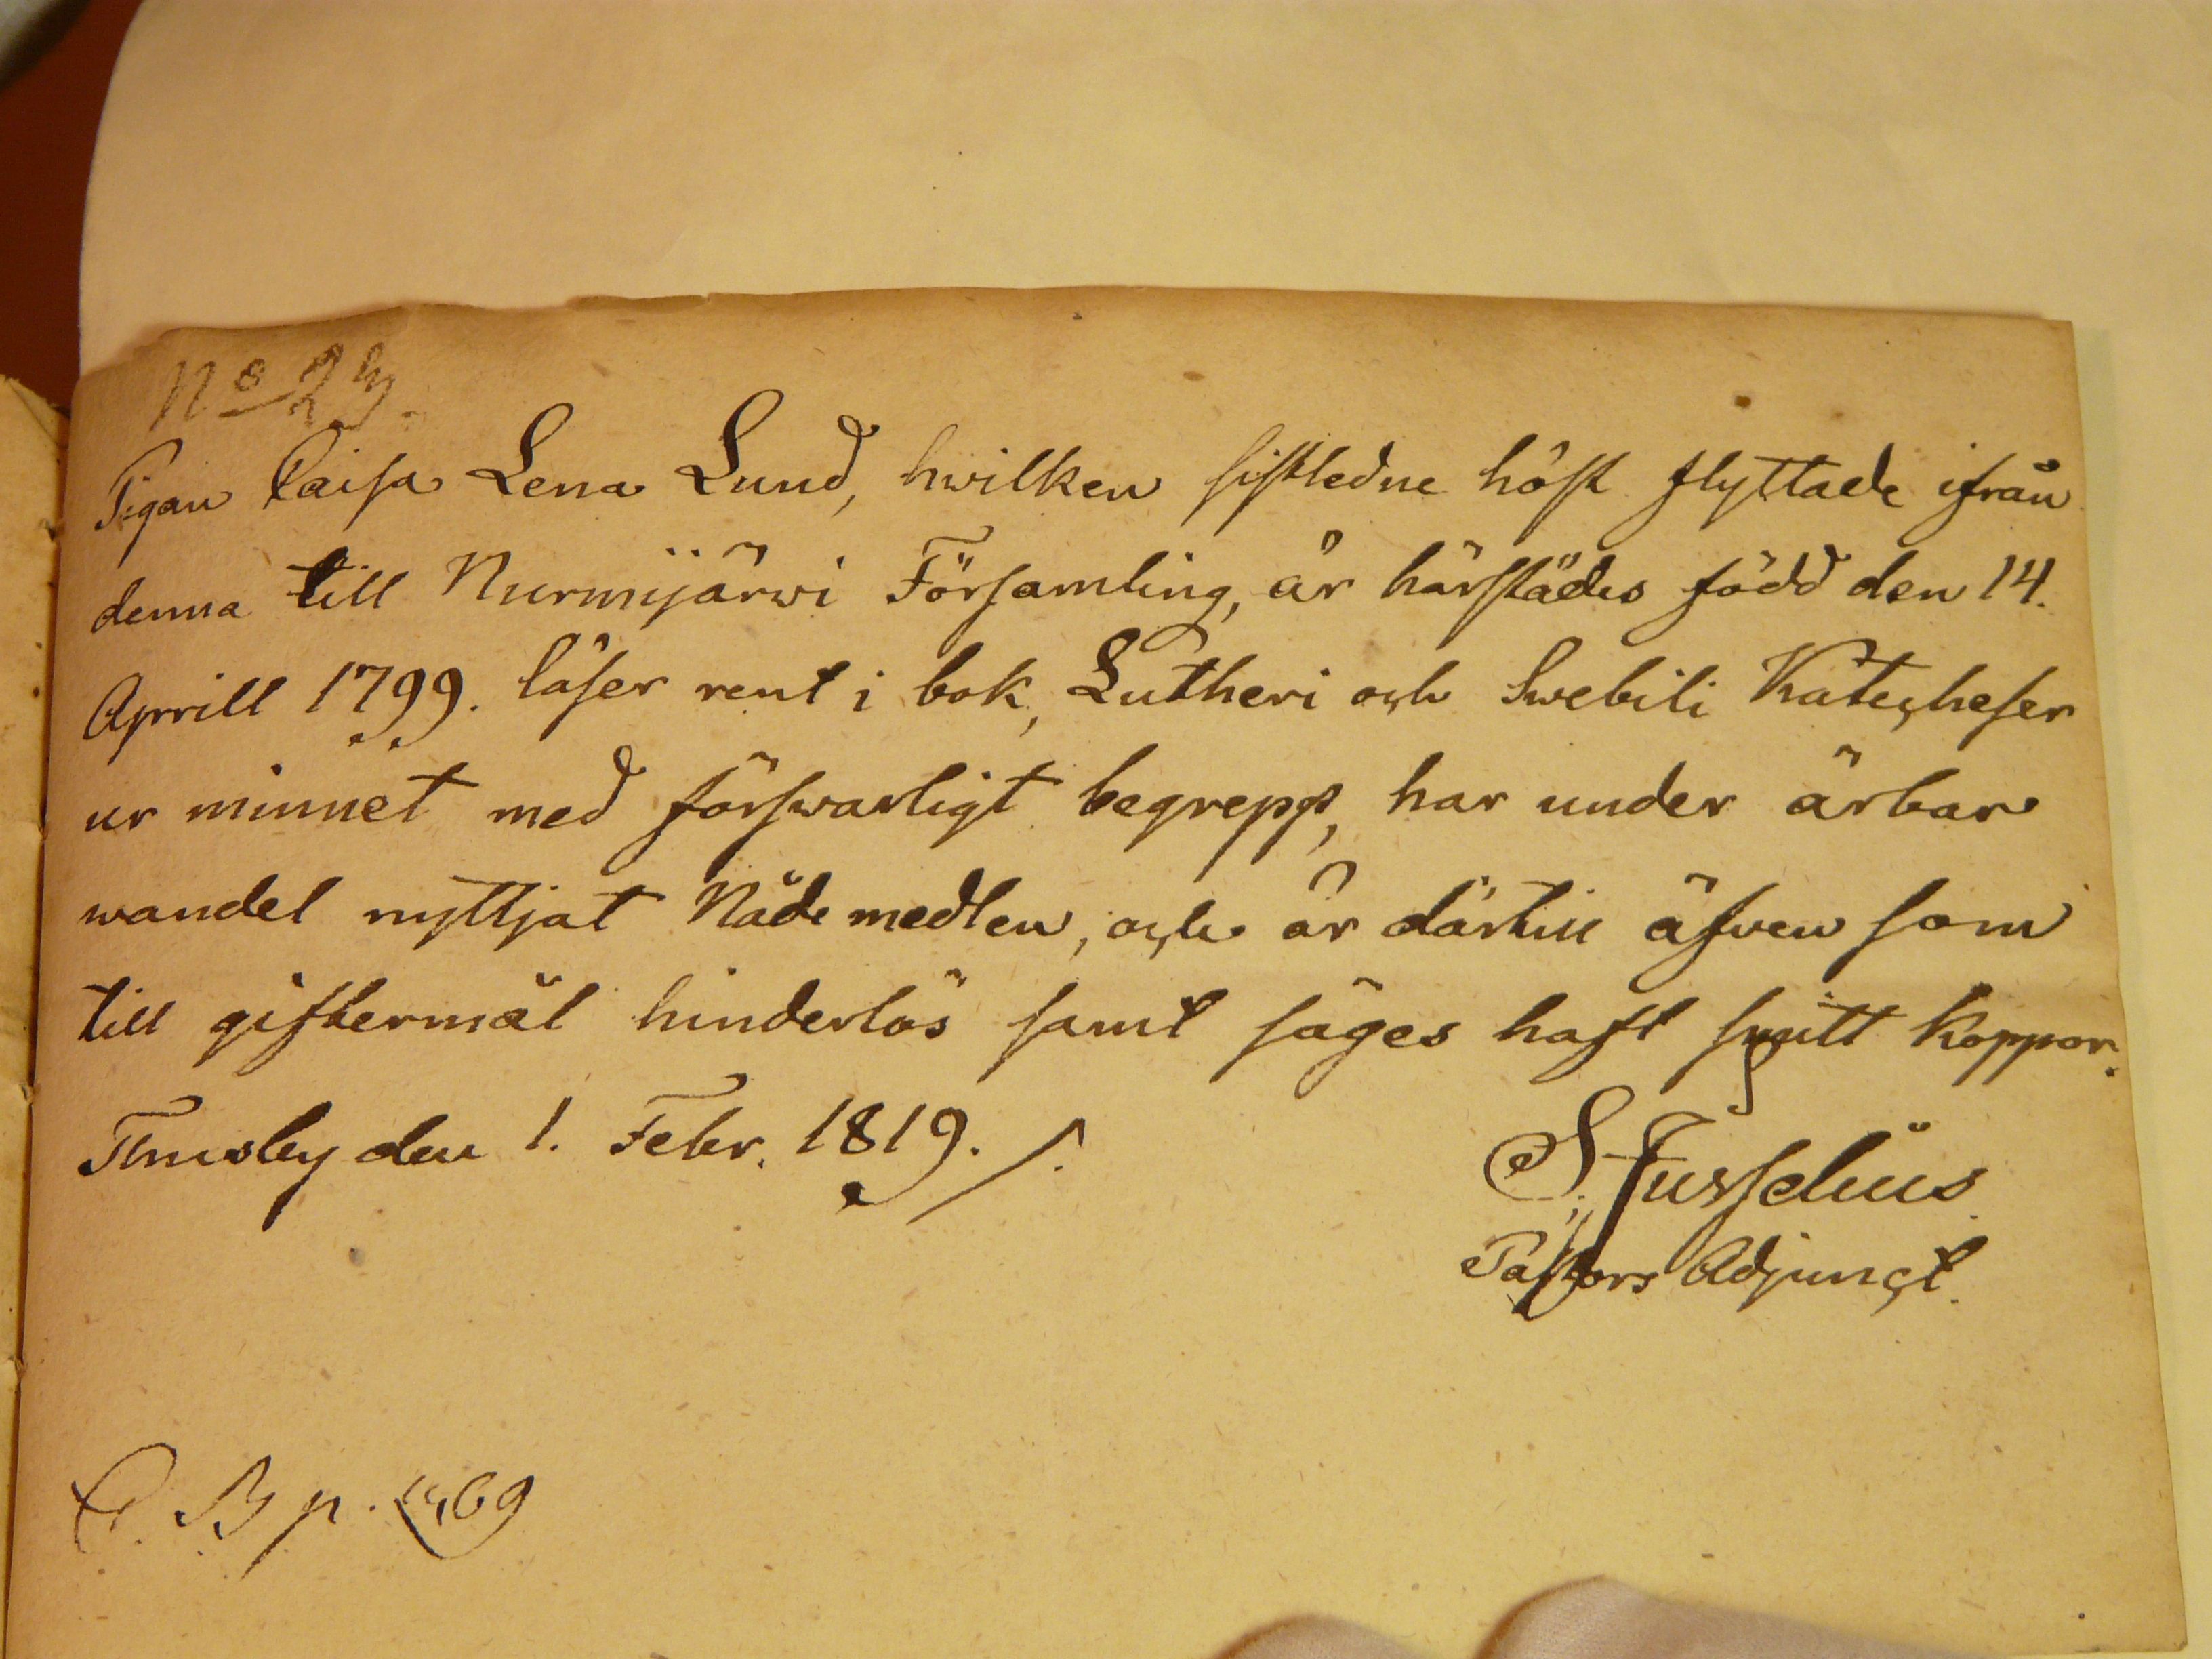 Pigan Caisa Lena Lund, hwilken sistledne höst flyttade ifrån
denna till Nurmijärwi Församling, är härstädes född den 14.
Aprill 1799. läser rent i bok, Lutheri och Swebili Katecheser
ur minnet med förswarligt begrepp, har under ärbar
wandel nyttjat Nådemedlen, och är därtill äfven som
till giftermål hinderlös samt säges haft smitt koppor.
Thusby den 1. Febr. 1819. /.
S. Fusselius.
Pastors Adjunct.
C. B p.